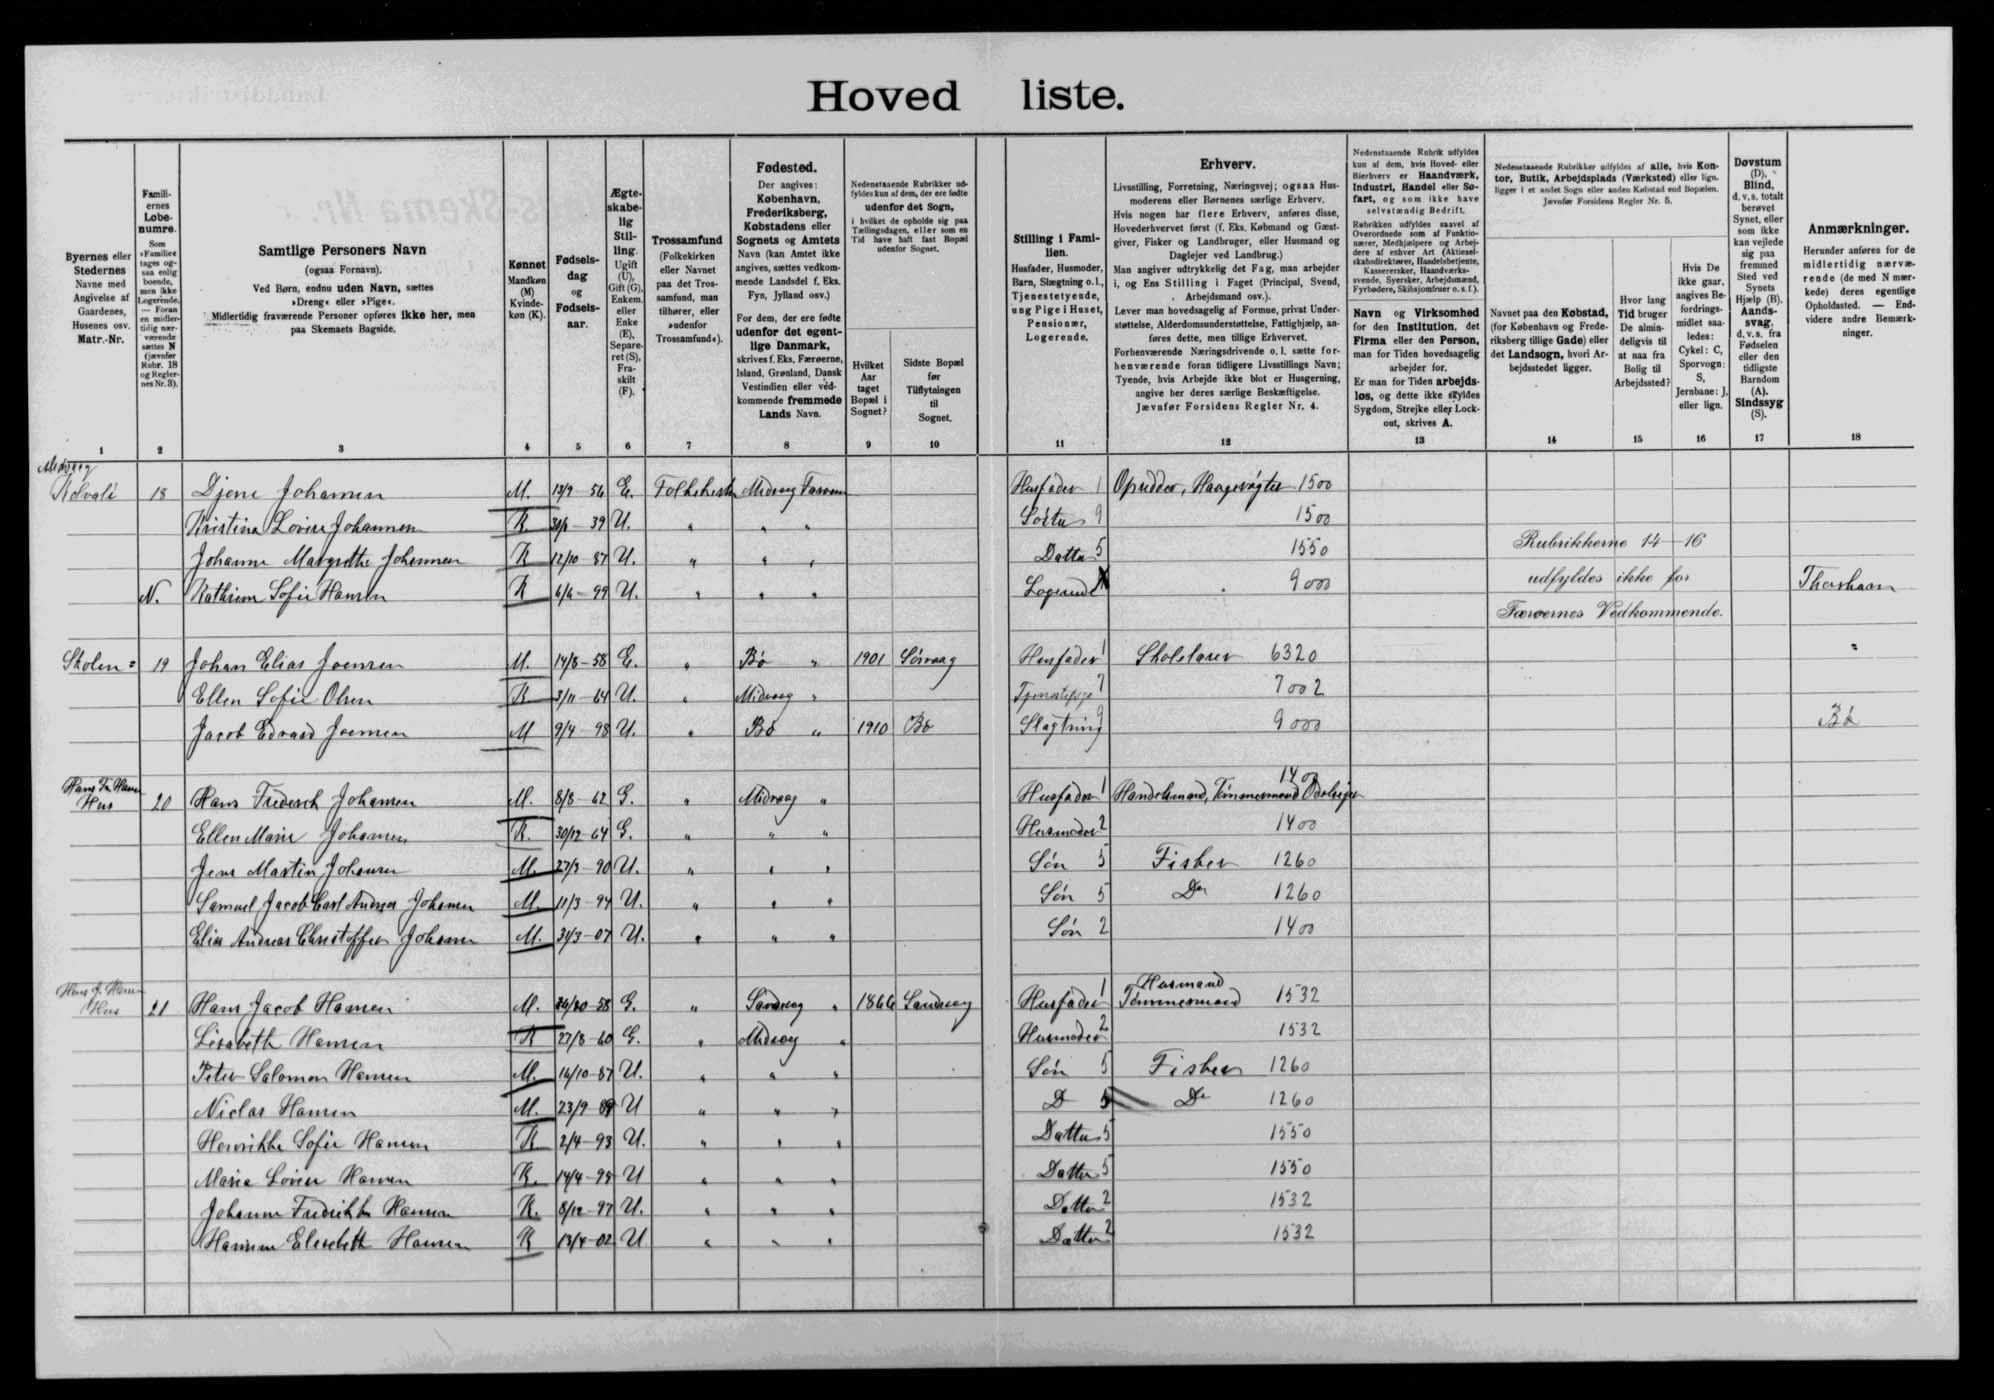 Hoved liste.
Byernes eller Stedernes Navne med Angivelse af Gaardenes, Husenes osv. Matr.-Nr.
Familiernes Løbenumre.
Som »Familie« tages ogsaa enlig boende, men ikke Logerende. — Foran en midlertidig nærværende sættes N (jævnfør Rubr. 18 og Reglernes Nr. 3).
Samtlige Personers Navn
(ogsaa Fornavn).
Ved Børn, endnu uden Navn, sættes »Dreng« eller »Pige«.
Midlertidig fraværende Personer opføres ikke her, men paa Skemaets Bagside.
Kønnet Mandkøn (M) Kvindekøn (K).
Fødselsdag og Fødselsaar.
Ægteskabelig Stilling. Ugift (U), Gift (G), Enkemand eller Enke (E), Separeret (S), Fraskilt (F).
Trossamfund (Folkekirken eller Navnet paa det Trossamfund, man tilhører, eller »udenfor Trossamfund«).
Fødested.
Der angives: København, Frederiksberg, Købstadens eller Sognets og Amtets Navn (kan Amtet ikke angives, sættes vedkommende Landsdel f. Eks. Fyn, Jylland osv.)
For dem, der ere fødte udenfor det egentlige Danmark, skrives f. Eks. Færøerne, Island, Grønland, Dansk Vestindien eller vedkommende fremmede Lands Navn.
Nedenstaaende Rubrikker udfyldes kun af dem, der ere fødte udenfor det Sogn, i hvilket de opholde sig paa Tællingsdagen, eller som en Tid have haft fast Bopæl udenfor Sognet.
Hvilket Aar taget Bopæl i Sognet?
Sidste Bopæl før Tilflytningen til Sognet.
Stilling i Familien.
Husfader, Husmoder, Barn, Slægtning o. l., Tjenestetyende, ung Pige i Huset, Pensionær, Logerende.
Erhverv.
Livsstilling, Forretning, Næringsvej; ogsaa Husmoderens eller Børnenes særlige Erhverv.
Hvis nogen har flere Erhverv, anføres disse, Hovederhvervet først (f. Eks. Købmand og Gæstgiver, Fisker og Landbruger, eller Husmand og Daglejer ved Landbrug.)
Man angiver udtrykkelig det Fag, man arbejder i, og Ens Stilling i Faget (Principal, Svend, Arbejdsmand osv.).
Lever man hovedsagelig af Formue, privat Understøttelse, Alderdomsunderstøttelse, Fattighjælp, anføres dette, men tillige Erhvervet.
Forhenværende Næringsdrivende o. l. sætte forhenværende foran tidligere Livsstillings Navn; Tyende, hvis Arbejde ikke blot er Husgerning, angive her deres særlige Beskæftigelse.
Jævnfør Forsidens Regler Nr. 4.
Nedenstaaende Rubrik udfyldes kun af dem, hvis Hoved- eller Bierhverv er Haandværk, Industri, Handel eller Søfart, og som ikke have selvstændig Bedrift.
Rubrikken udfyldes saavel af Overordnede som af Funktionærer, Medhjælpere og Arbejdere af enhver Art (Aktieselskabsdirektører, Handelsbetjente, Kassererersker, Haandværkssvende, Syersker, Arbejdsmænd, Fyrbødere, Skibsjomfruer o. s. f.).
Navn og Virksomhed for den Institution, det Firma eller den Person, man for Tiden hovedsagelig arbejder for.
Er man for Tiden arbejdsløs, og dette ikke skyldes Sygdom, Strejke eller Lockout, skrives A.
Nedenstaaende Rubrikker udfyldes af alle, hvis Kontor, Butik, Arbejdsplads (Værksted) eller lign. ligger i et andet Sogn eller anden Købstad end Bopælen. Jævnfør Forsidens Regler Nr. 5.
Navnet paa den Købstad, (for København og Frederiksberg tillige Gade) eller det Landsogn, hvori Arbejdsstedet ligger.
Hvor lang Tid bruger De almindeligvis til at naa fra Bolig til Arbejdssted?
Hvis De ikke gaar, angives Befordringsmidlet saaledes: Cykel: C, Sporvogn: S, Jernbane: J, eller lign.
Døvstum (D), Blind, d. v. s. totalt berøvet Synet, eller som ikke kan vejlede sig paa fremmed Sted ved Synets Hjælp (B). Aandssvag, d. v. s. fra Fødselen eller den tidligste Barndom (A). Sindssyg (S).
Anmærkninger.
Herunder anføres for de midlertidig nærværende (de med N mærkede) deres egentlige Opholdssted. — Endvidere andre Bemærkninger.
1 2 3 4 5 6 7 8 9 10 11 12 13 14 15 16 17 18
Midvaag
18 Djoni Johansen M. 13/9-56 E. Folkekirken Midvaag Færøerne Husfader 1 Opsidder, 1500
Kristina Lovise Johannesen K 39 U. " " " 9 1500
Johanne Margrethe Johannesen K 12/10 87 U. " " " Datter 5 1550
Rubrikkerne 14-16
N. Kathrine Sofie Hansen K 6/6-99 U. " " " Logerende 9000 Thorshavn
udfyldes ikke for
Færøernes Vedkommende.
Skolen 19 Johan Elias Joensen M. 14/8-58 E. " Bø " 1901 Sørvaag Husfader 1 Skolelærer 6320 "
Ellen Sofie Olsen K 3/11-64 U. " Midvaag " Tjenestepige 7 7002
Jacob Edvard Joensen M 9/4-98 U. " Bø " 1910 Bø Slagtning 9 9000 Bø
Hans Fr. Hansen Hus 20 Hans Frederik Johansen M. 8/8-62 G. " Midvaag " Husfader 1 Handelsmand, Tømmermand 1400
Ellen Marie Johansen K. 30/12-64 G. " " " Husmoder 2 1400
Jens Martin Johansen M. 27/3-90 U. " " " Søn 5 Fisker 1260
Samuel Jacob Carl Andreas Johansen M. 11/3-94 U. " " " Søn 5 Do 1260
Elias Andreas Christoffer Johansen M. 31/3-07 U. " " " Søn 2 1400
Hans J. Hansen Hus 21 Hans Jacob Hansen M. G. " Sandvaag " 1866 Sandvaag Husfader 1 Husmand Tømmermand 1532
Lisabeth Hansen K 27/8-60 G. " Midvaag " Husmoder 2 1532
Peter Salomon Hansen M. 16/10-87 U. " " " Søn 5 Fisker 1260
Niclas Hansen M. 23/9-89 U " " " D 5 Do 1260
Henrikke Sofie Hansen K 2/4-93 U. " " " Datter 5 1550
Maria Lovise Hansen K. 14/4-95 U " " " Datter 5 1550
Johanne Fredrikke Hansen K. 8/12-97 U. " " " Datter 2 1532
Hansine Elesebeth Hansen K 13/4-02 U " " " Datter 2 1532